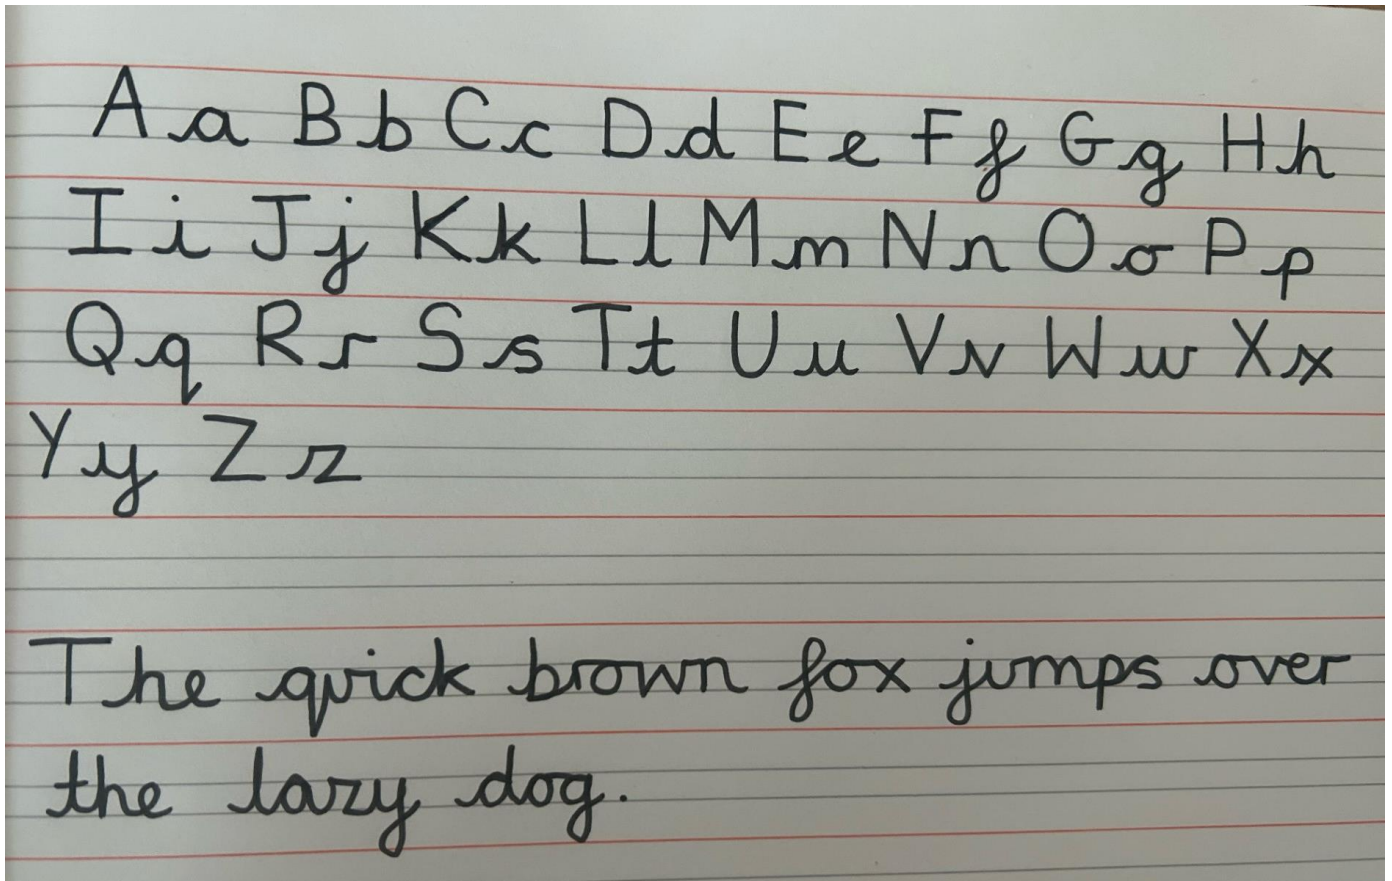 A a B b C c D d E e F f G g H h
I i J j K k L l M m N n O o P p
Q q R r S s T t U u V v W w X x
Y y Z z
The quick brown fox jumps over
the lazy dog.